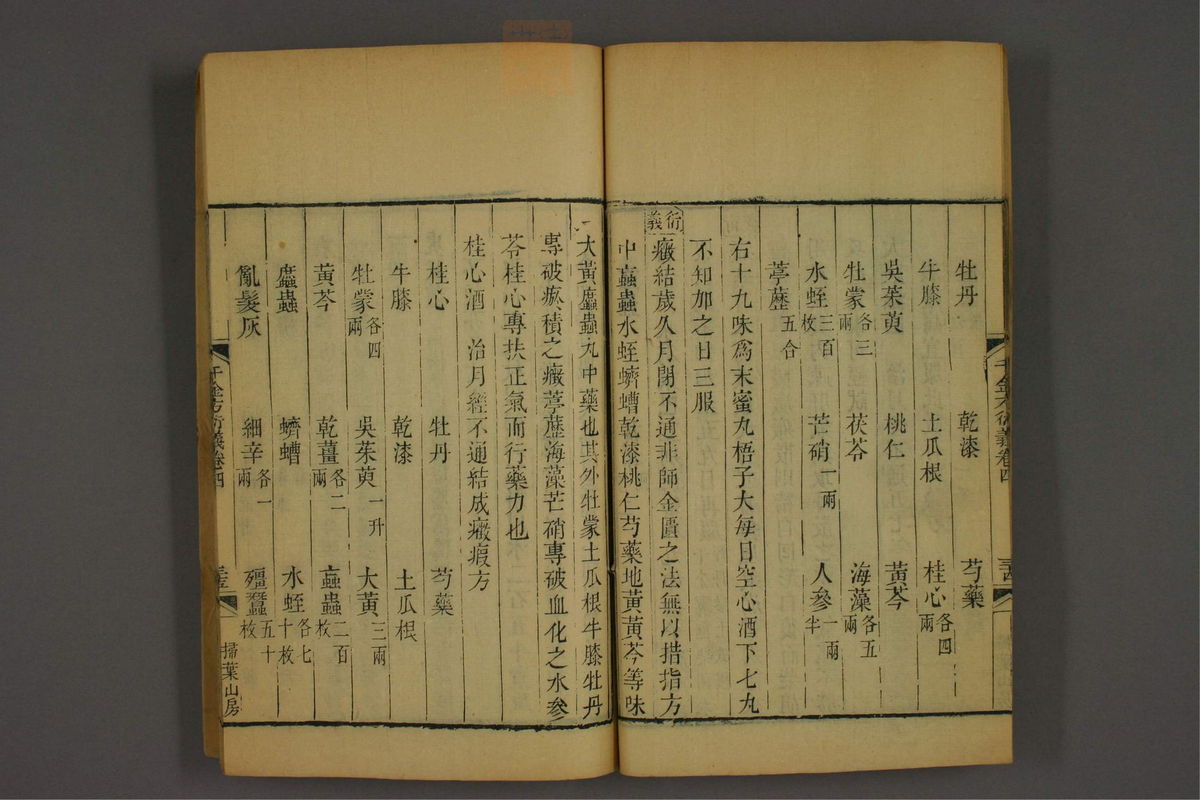 牡丹　乾漆　芍藥
牛膝　土瓜根　桂心各四兩
吳茱萸　桃仁　黃芩
牡蒙各三兩　茯苓　海藻各五兩
水蛭三百枚　芒硝一兩　人參一兩半
葶藶五合
右十九味爲末蜜丸梧子大每日空心酒下七丸
不知加之日三服
衍義
癥結歲久月閉不通非師金匱之法無以措指方
中蝱蟲水蛭蠐螬乾漆桃仁芍藥地黃黃芩等味
大黃䗪蟲丸中藥也其外牡蒙土瓜根牛膝牡丹
專破瘀積之癥葶藶海藻芒硝專破血化之水參
苓桂心專扶正氣而行藥力也
桂心酒　治月經不通結成癥瘕方
桂心　牡丹　芍藥
牛膝　乾漆　土瓜根
牡蒙各四兩　吳茱萸一升　大黃三兩
黃芩　乾薑各二兩　蝱蟲二百枚
䗪蟲　蠐螬　水蛭各七十枚
亂髮灰　細辛各一兩　殭蠶五十枚
千金方衍義卷四　三十五
掃葉山房